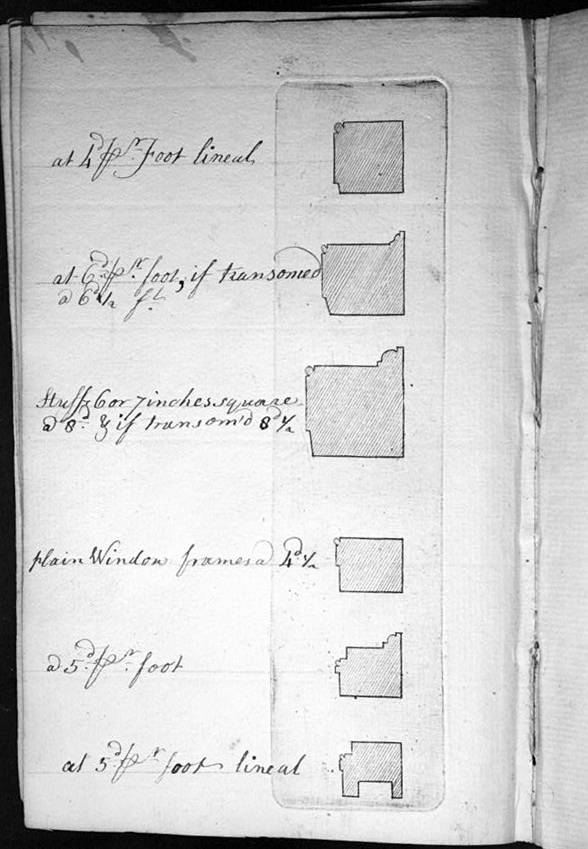 at 4d pr Foot lineal
at 6d pr foot, if transomed
a 6d 1/2 ft
Stuff 6 or 7 inches square
a 8d & if transom'd 8d 1/2
plain Window frames a 4d 1/2
a 5d pr foot
at 5d pr foot lineal